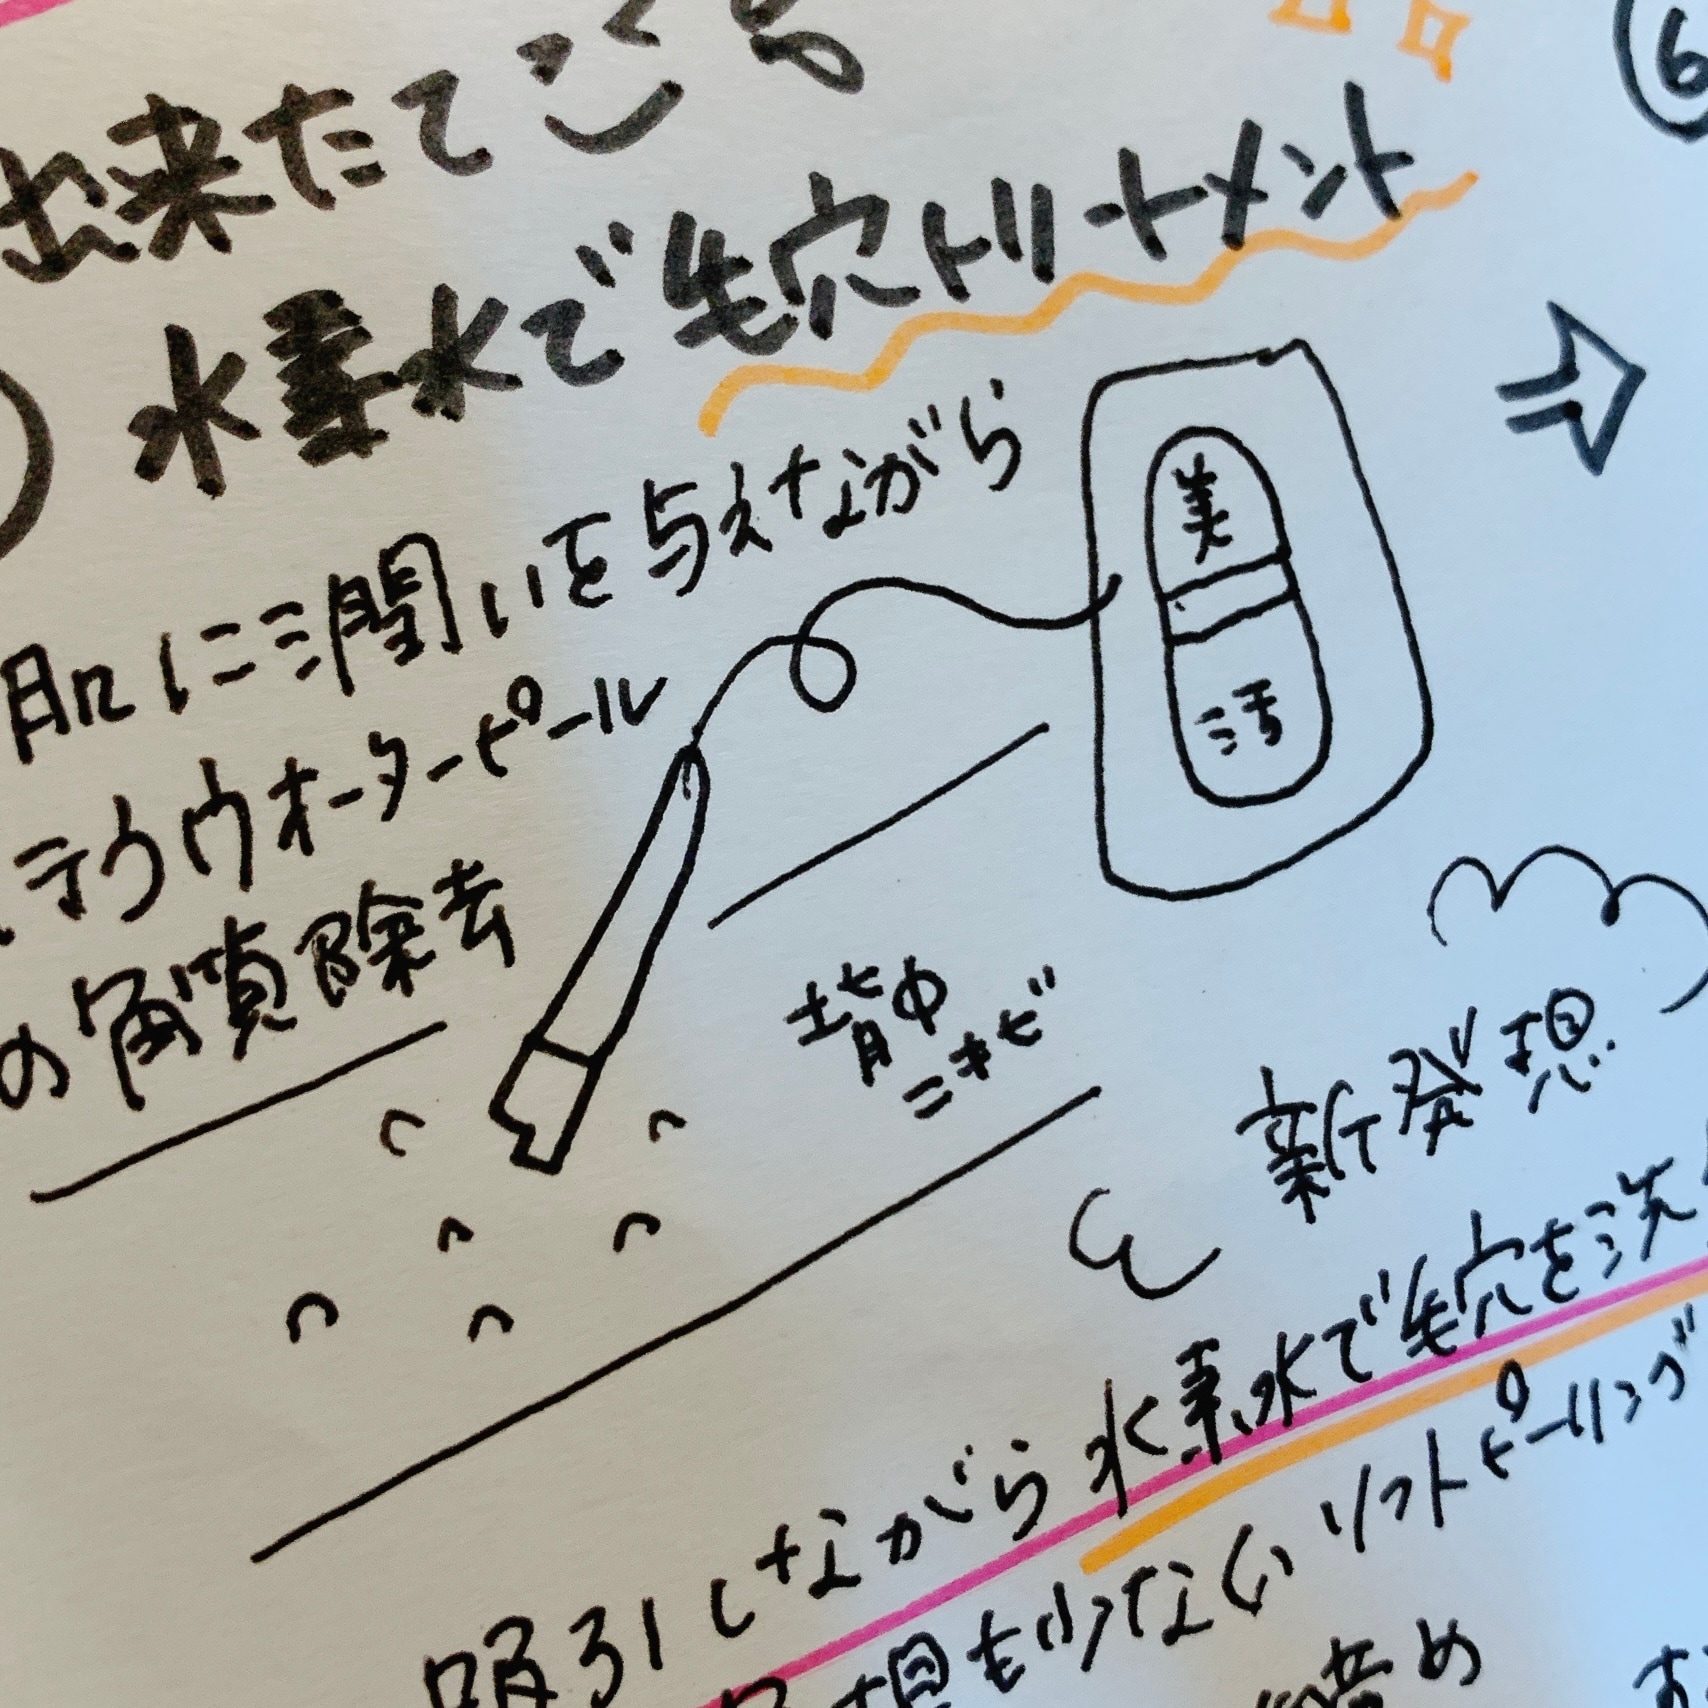 出来たてごろ
水素水で毛穴トリートメント
肌に潤いを与えながら
ラクウォーターピール
の角質除去
美
汚
背中
ニキビ
6
新発想
吸引しながら水素水で毛穴を洗
も少ないソフトピーリング
締め